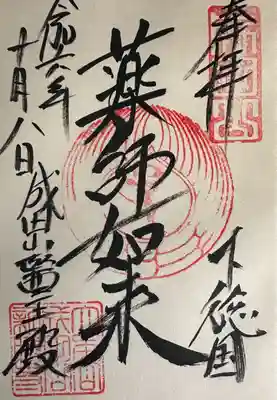 奉拝
下総国
薬師如来
令和六年
十月八日 成田山醫王殿